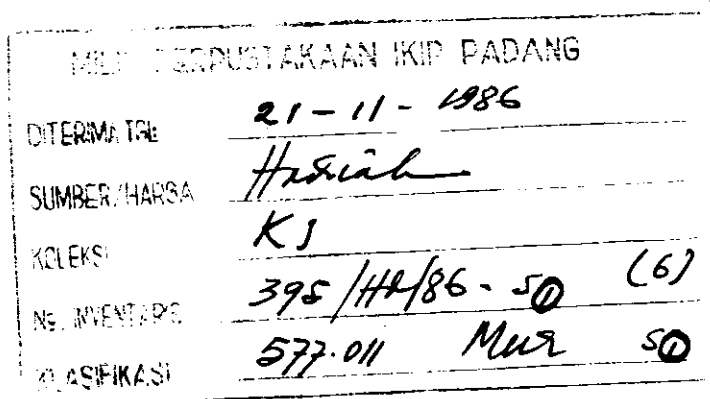 MILIK PERPUSTAKAAN IKIP PADANG
DITERIMA TGL 21-11-1986
SUMBER/HARGA Hadiah
KOLEKSI KI
No. INVENTARIS 395/Hd/86-S① (6)
KLASIFIKASI 577.011 Mur S①